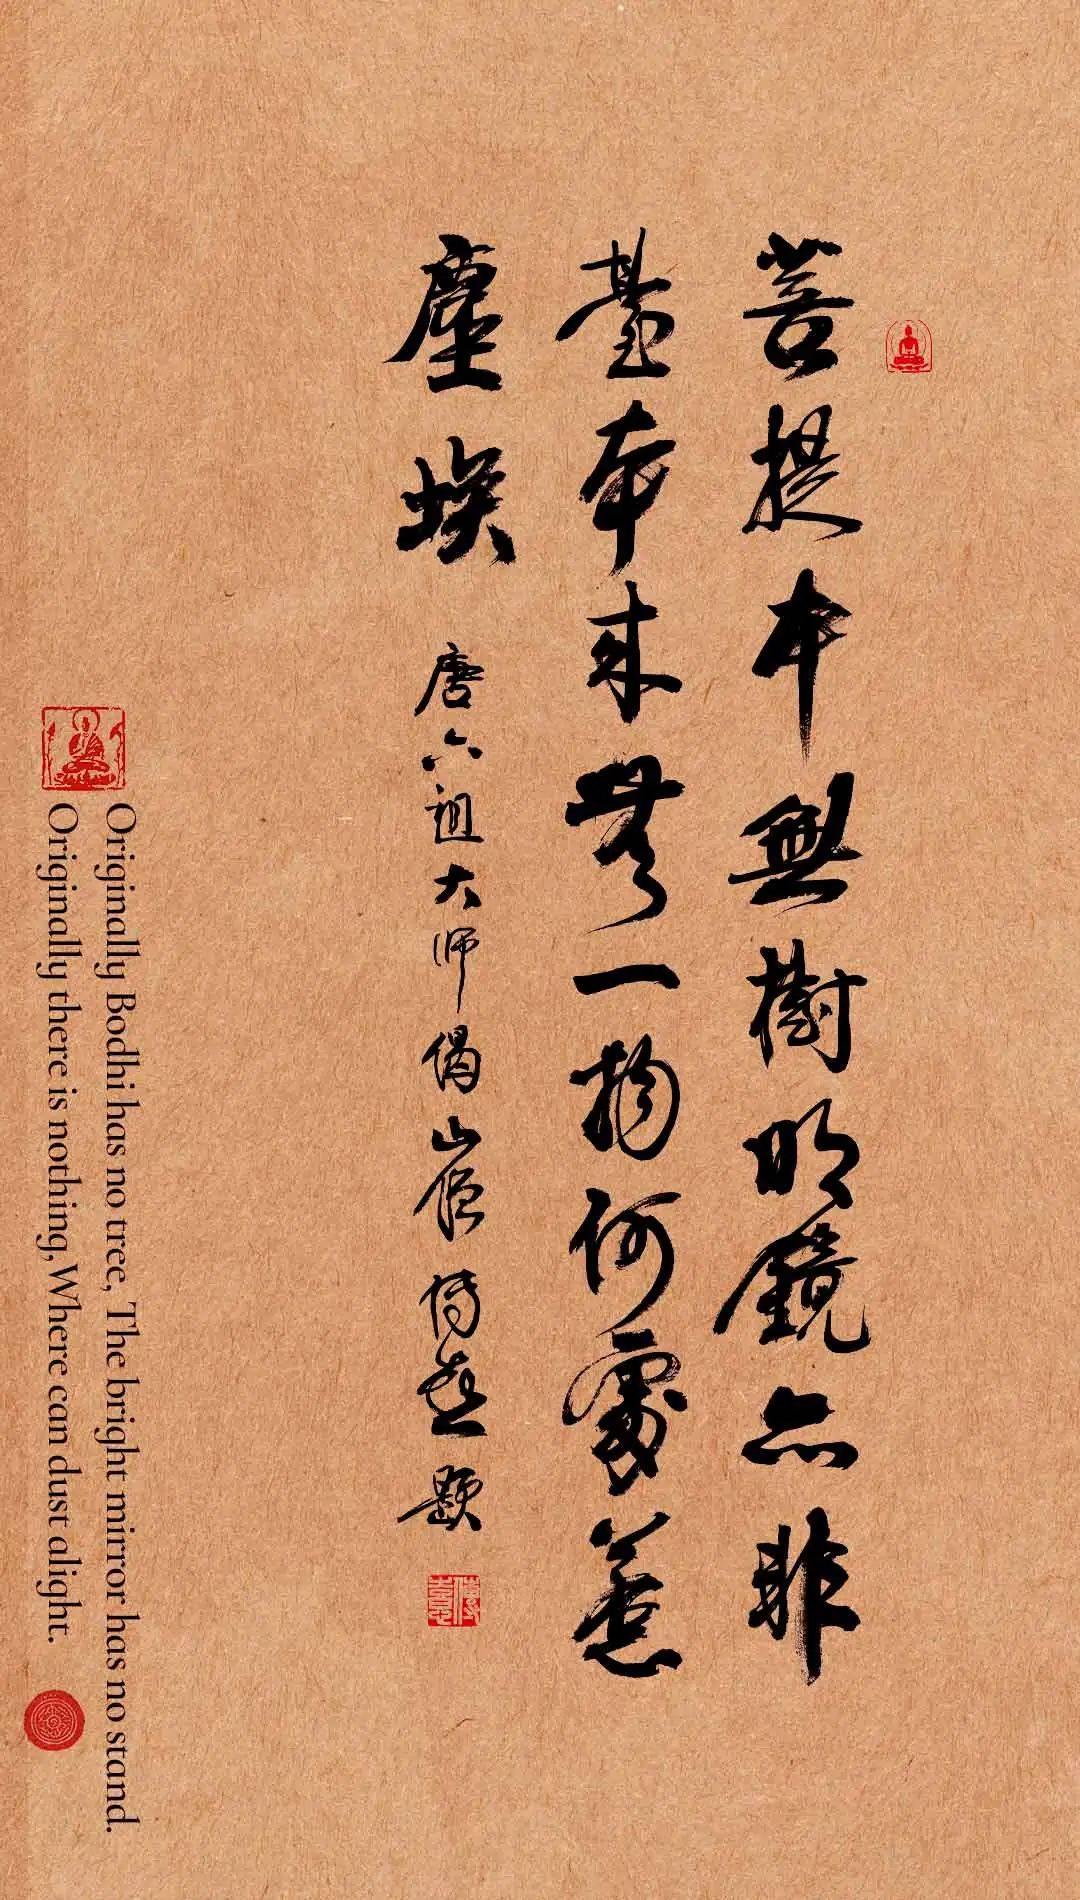 菩提本無樹明鏡亦非
臺本來無一物何處惹
塵埃
唐六祖大师偈山居傅熹題
Originally Bodhi has no tree, The bright mirror has no stand.
Originally there is nothing, Where can dust alight.